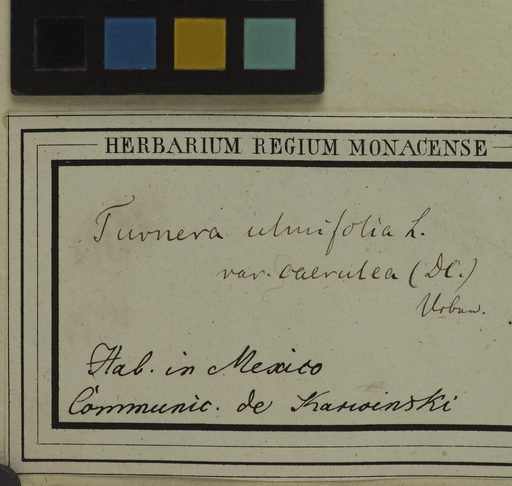 HERBARIUM REGIUM MONACENSE
Turnera ulmifolia L.
var. caerulea (DC.)
Urban.
Hab. in Mexico
Communic. de Karwinski